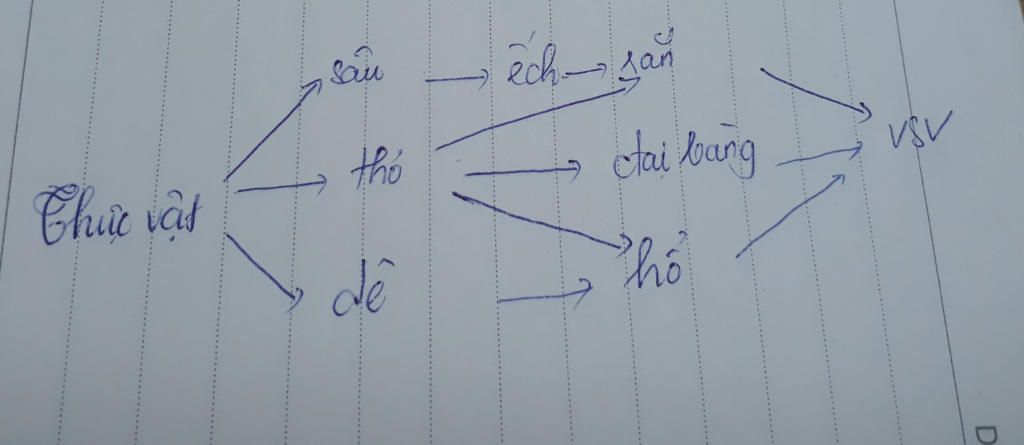 sâu → ếch → rắn
thỏ → đại bàng
VSV
Thực vật
dê → hổ
D